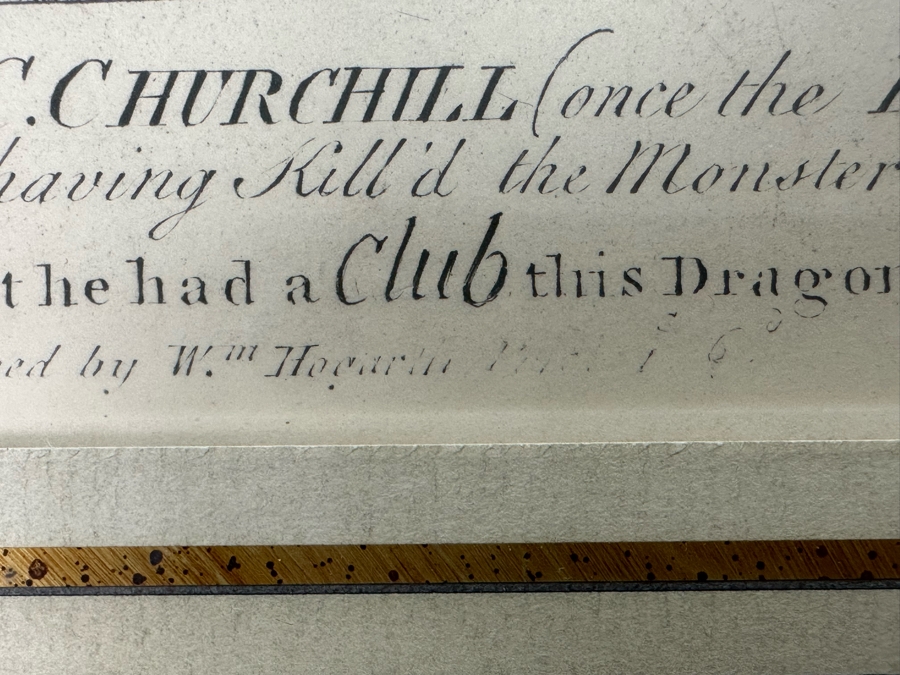 C. CHURCHILL (once the
having Kill'd the Monster
the had a Club this Dragon
ed by W.m Hogarth